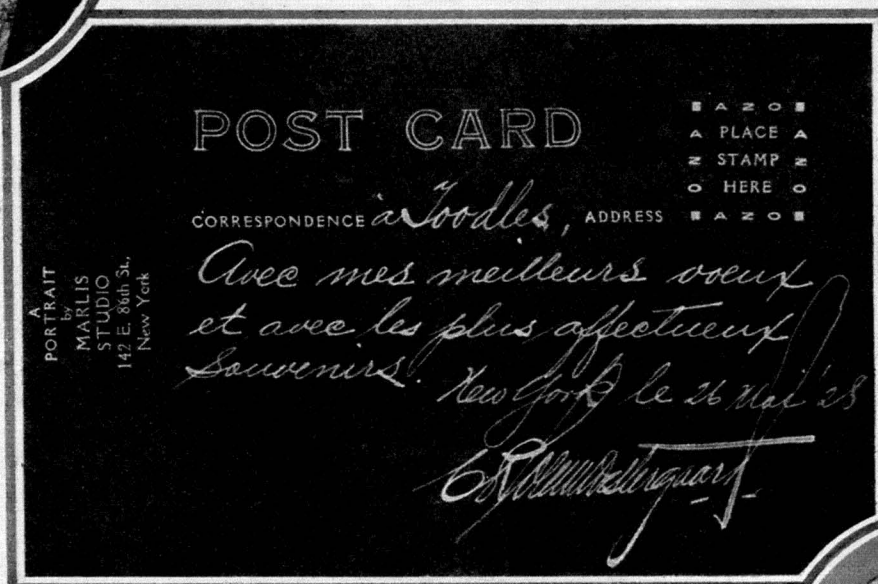 POST CARD
AZO
A PLACE A
Z STAMP Z
O HERE O
AZO
CORRESPONDENCE à Toodles, ADDRESS
Avec mes meilleurs voeux
et avec les plus affectueux
Souvenirs.
New York le 26 Mai '28
A
PORTRAIT
by
MARLIS
STUDIO
142 E. 86th St.,
New York